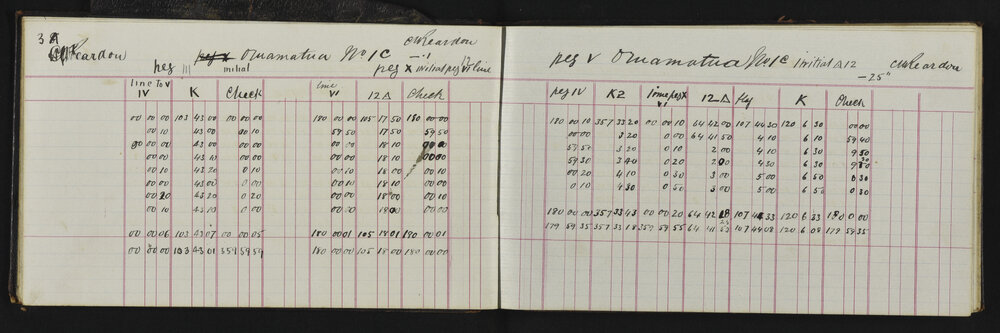 38
CWReardon
peg III initial Oruamatua No 1C CWReardon
peg X initial peg V line
line to V IV K Check line VI 12 Δ Check
00 00 00 103 43 00 00 00 00 180 00 00 105 17 50 180 00 00
00 10 43 00 00 10 59 50 17 50 59 50
00 00 00 43 00 00 00 00 00 18 10 00 00
00 00 43 10 00 00 00 00 18 10 00 00
00 10 43 20 0 10 00 10 18 00 00 10
00 00 43 00 0 00 00 10 18 10 00 00
00 20 43 20 0 20 00 10 18 00 00 10
00 10 43 10 0 10 00 00 18 00 00 00
00 00 06 103 43 07 00 00 05 180 00 01 105 18 01 180 00 01
00 00 00 103 43 01 359 59 59 180 00 00 105 18 00 180 00 00
peg V Oruamatua No 1C initial Δ 12 CWReardon
-25"
peg IV K2 12 Δ K Check
180 00 10 357 33 20 00 00 10 64 42 00 107 44 30 120 6 30 00 00
00 00 3 20 0 00 64 41 50 4 10 6 10 59 40
59 50 3 20 0 10 2 00 4 10 6 30 9 50
59 30 3 40 0 20 2 00 4 30 6 30
00 20 4 10 0 30 3 00 5 00 6 50 0 30
0 10 4 30 0 50 3 00 5 00 6 50 0 30
180 00 00 357 33 43 00 00 20 64 42 107 44 33 120 6 33 180 0 00
179 59 35 357 33 18 359 59 55 64 41 107 44 08 120 6 08 179 59 35